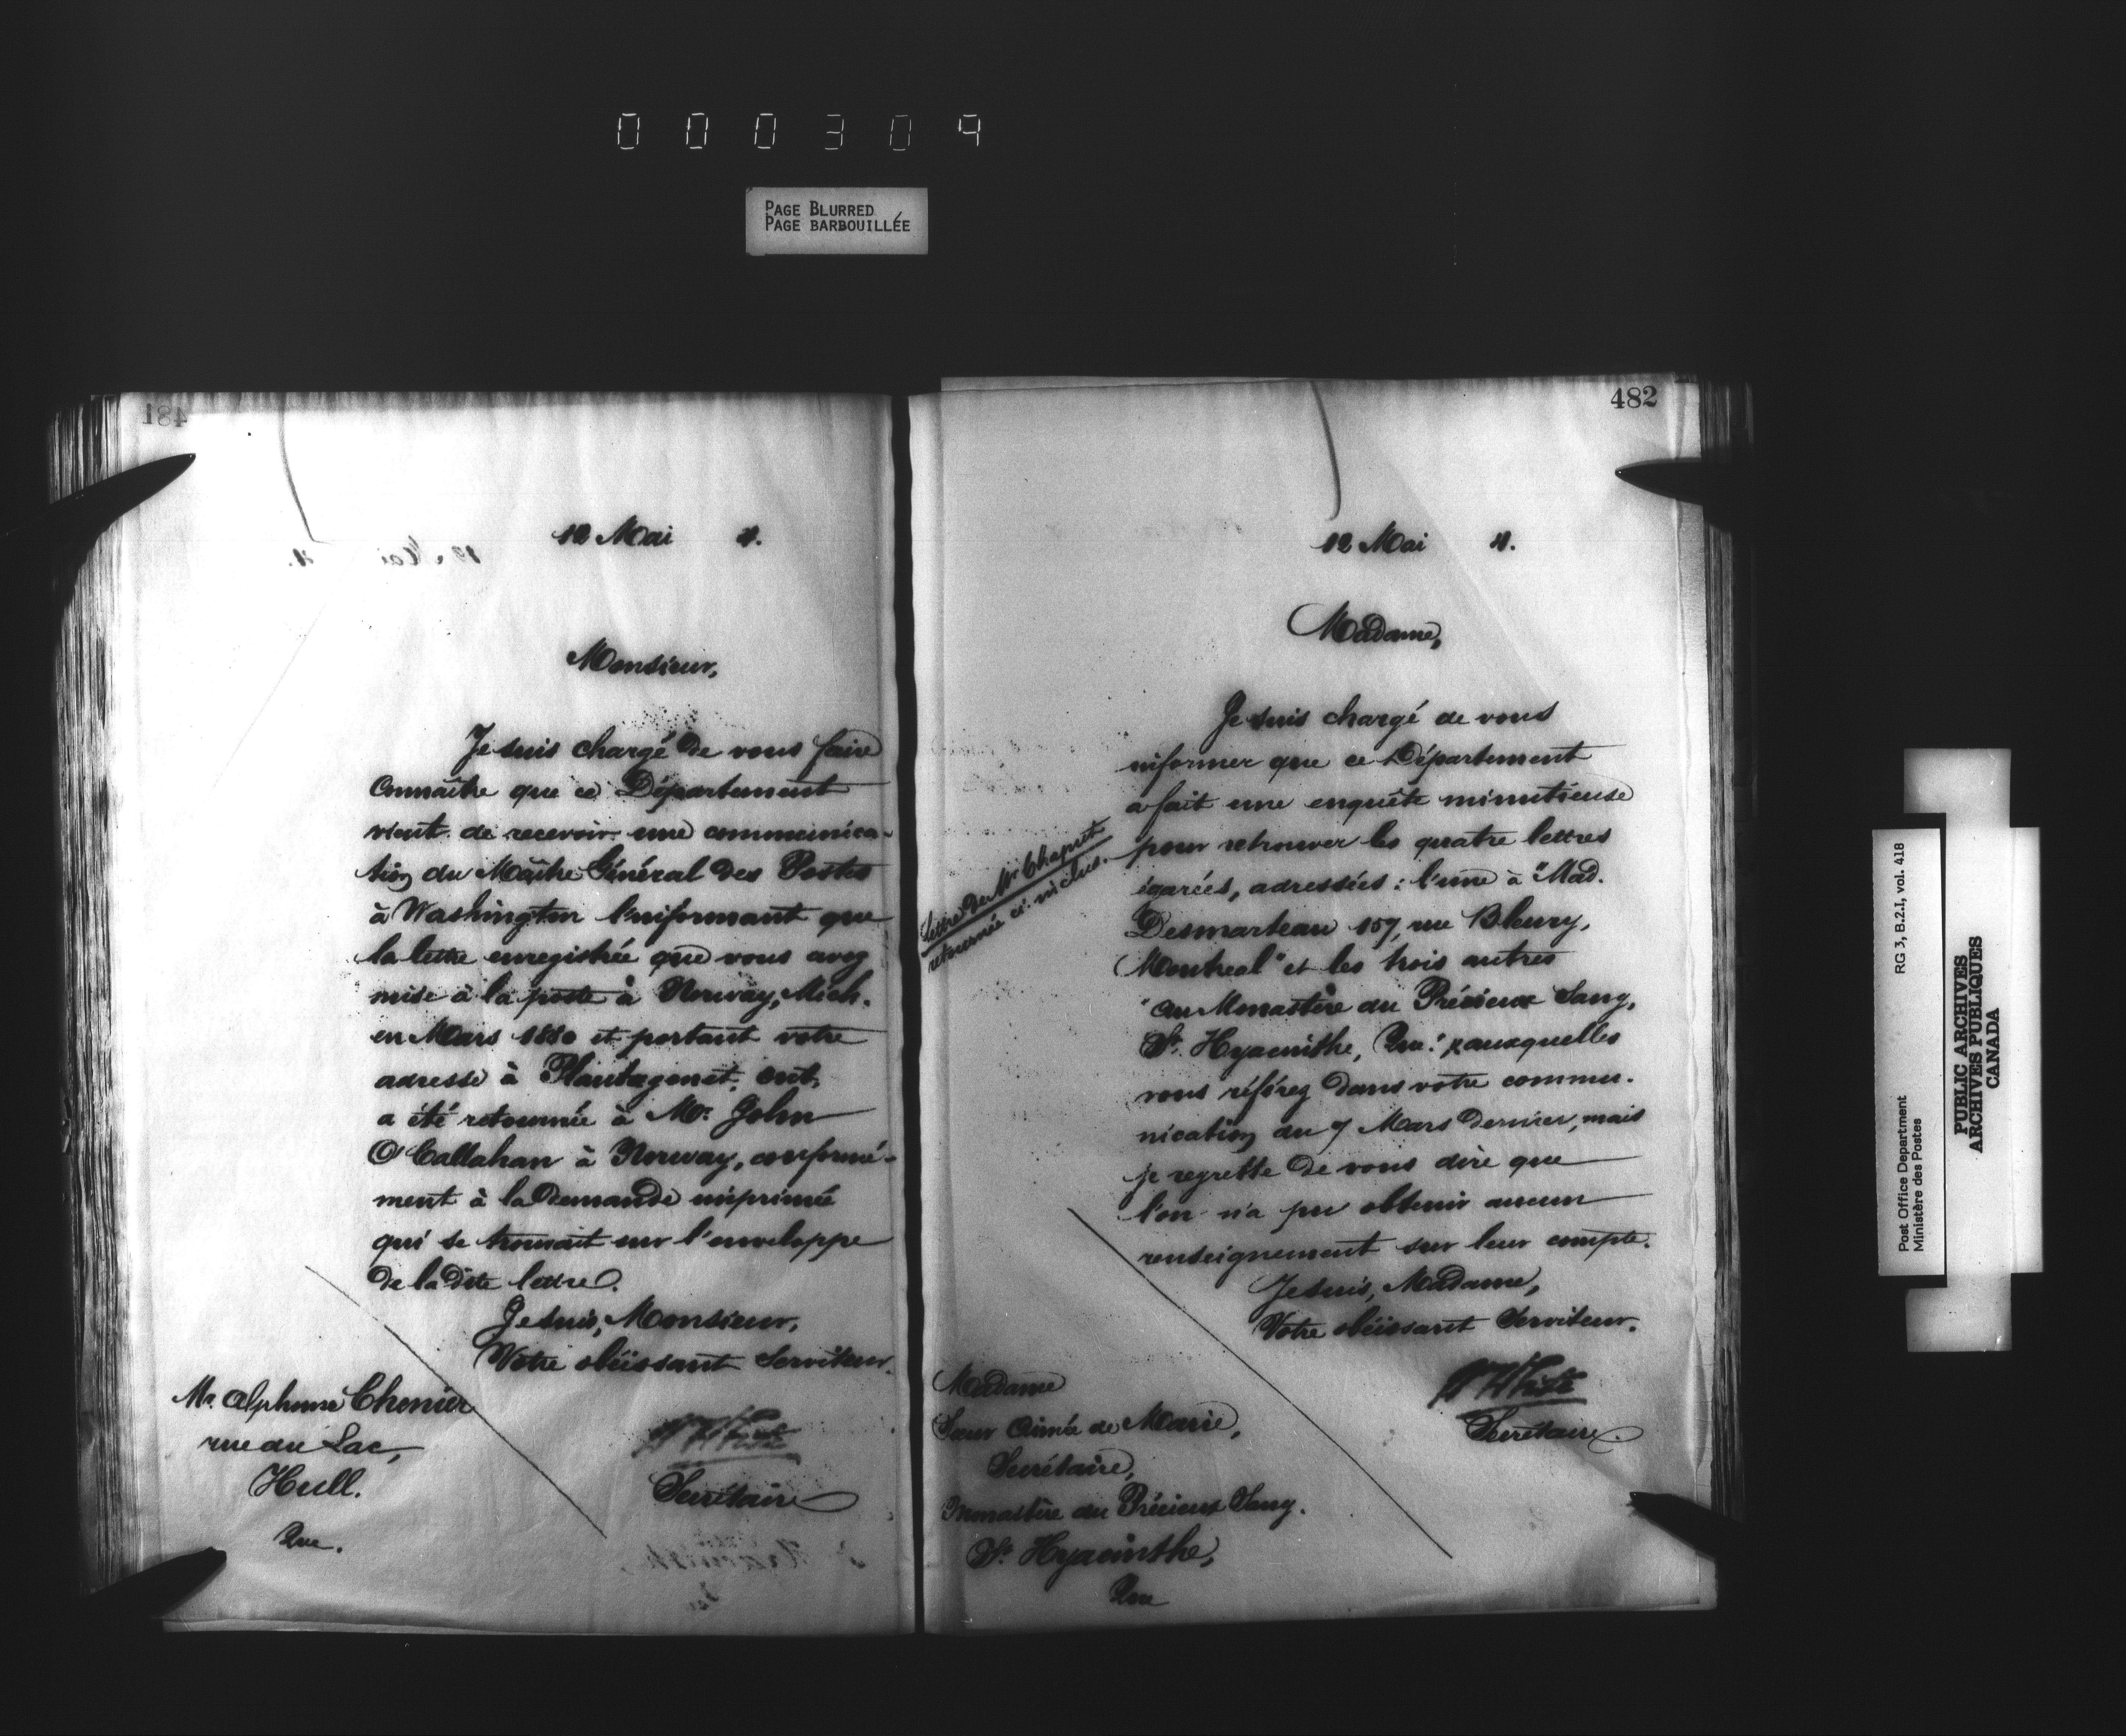 000309
PAGE BLURRED
PAGE BARBOUILLÉE
481
12 Mai 4.
Monsieur,
Je suis chargé de vous faire
connaître que ce Département
vient de recevoir une communica-
tion du Maître Général des Postes
à Washington l'informant que
la lettre enregistrée que vous avez
mise à la poste à Norway, Mich.
en Mars 1880 et portant votre
adresse à Plantagenet, Ont,
a été retournée à Mr. John
O'Callahan à Norway, conformé-
ment à la demande imprimée
qui se trouvait sur l'enveloppe
de la dite lettre.
Je suis, Monsieur,
Votre obéissant Serviteur.
Secrétaire
Mr. Alphonse Chenier
rue du Lac,
Hull.
Que.
482
12 Mai 4.
Madame,
Je suis chargé de vous
informer que ce Département
a fait une enquête minutieuse
pour retrouver les quatre lettres
égarées, adressées: l'une à "Mad.
Desmarteau 157, rue Bleury,
Montreal" et les trois autres
"au Monastère du Précieux Sang,
St. Hyacinthe, Que." auxquelles
vous référez dans votre commu-
nication du 7 Mars dernier, mais
je regrette de vous dire que
l'on n'a pu obtenir aucun
renseignement sur leur compte.
Je suis, Madame,
Votre obéissant Serviteur.
Secrétaire.
Lettre de Mr
retournée ci-inclus.
Madame
Sœur Aimée de Marie,
Secrétaire,
Monastère du Précieux Sang.
St. Hyacinthe,
Que
Post Office Department RG 3, B.2.I, vol. 418
Ministère des Postes
PUBLIC ARCHIVES
ARCHIVES PUBLIQUES
CANADA